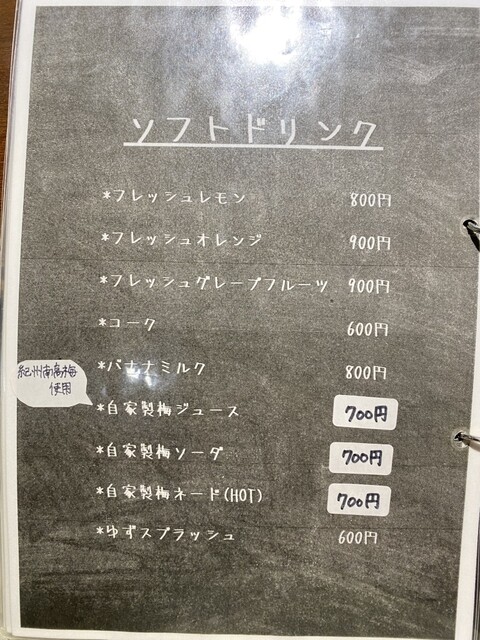 ソフトドリンク
*フレッシュレモン 800円
*フレッシュオレンジ 900円
*フレッシュグレープフルーツ 900円
*コーク 600円
*バナナミルク 800円
紀州南高梅
使用
*自家製梅ジュース 700円
*自家製梅ソーダ 700円
*自家製梅ネード(HOT) 700円
*ゆずスプラッシュ 600円